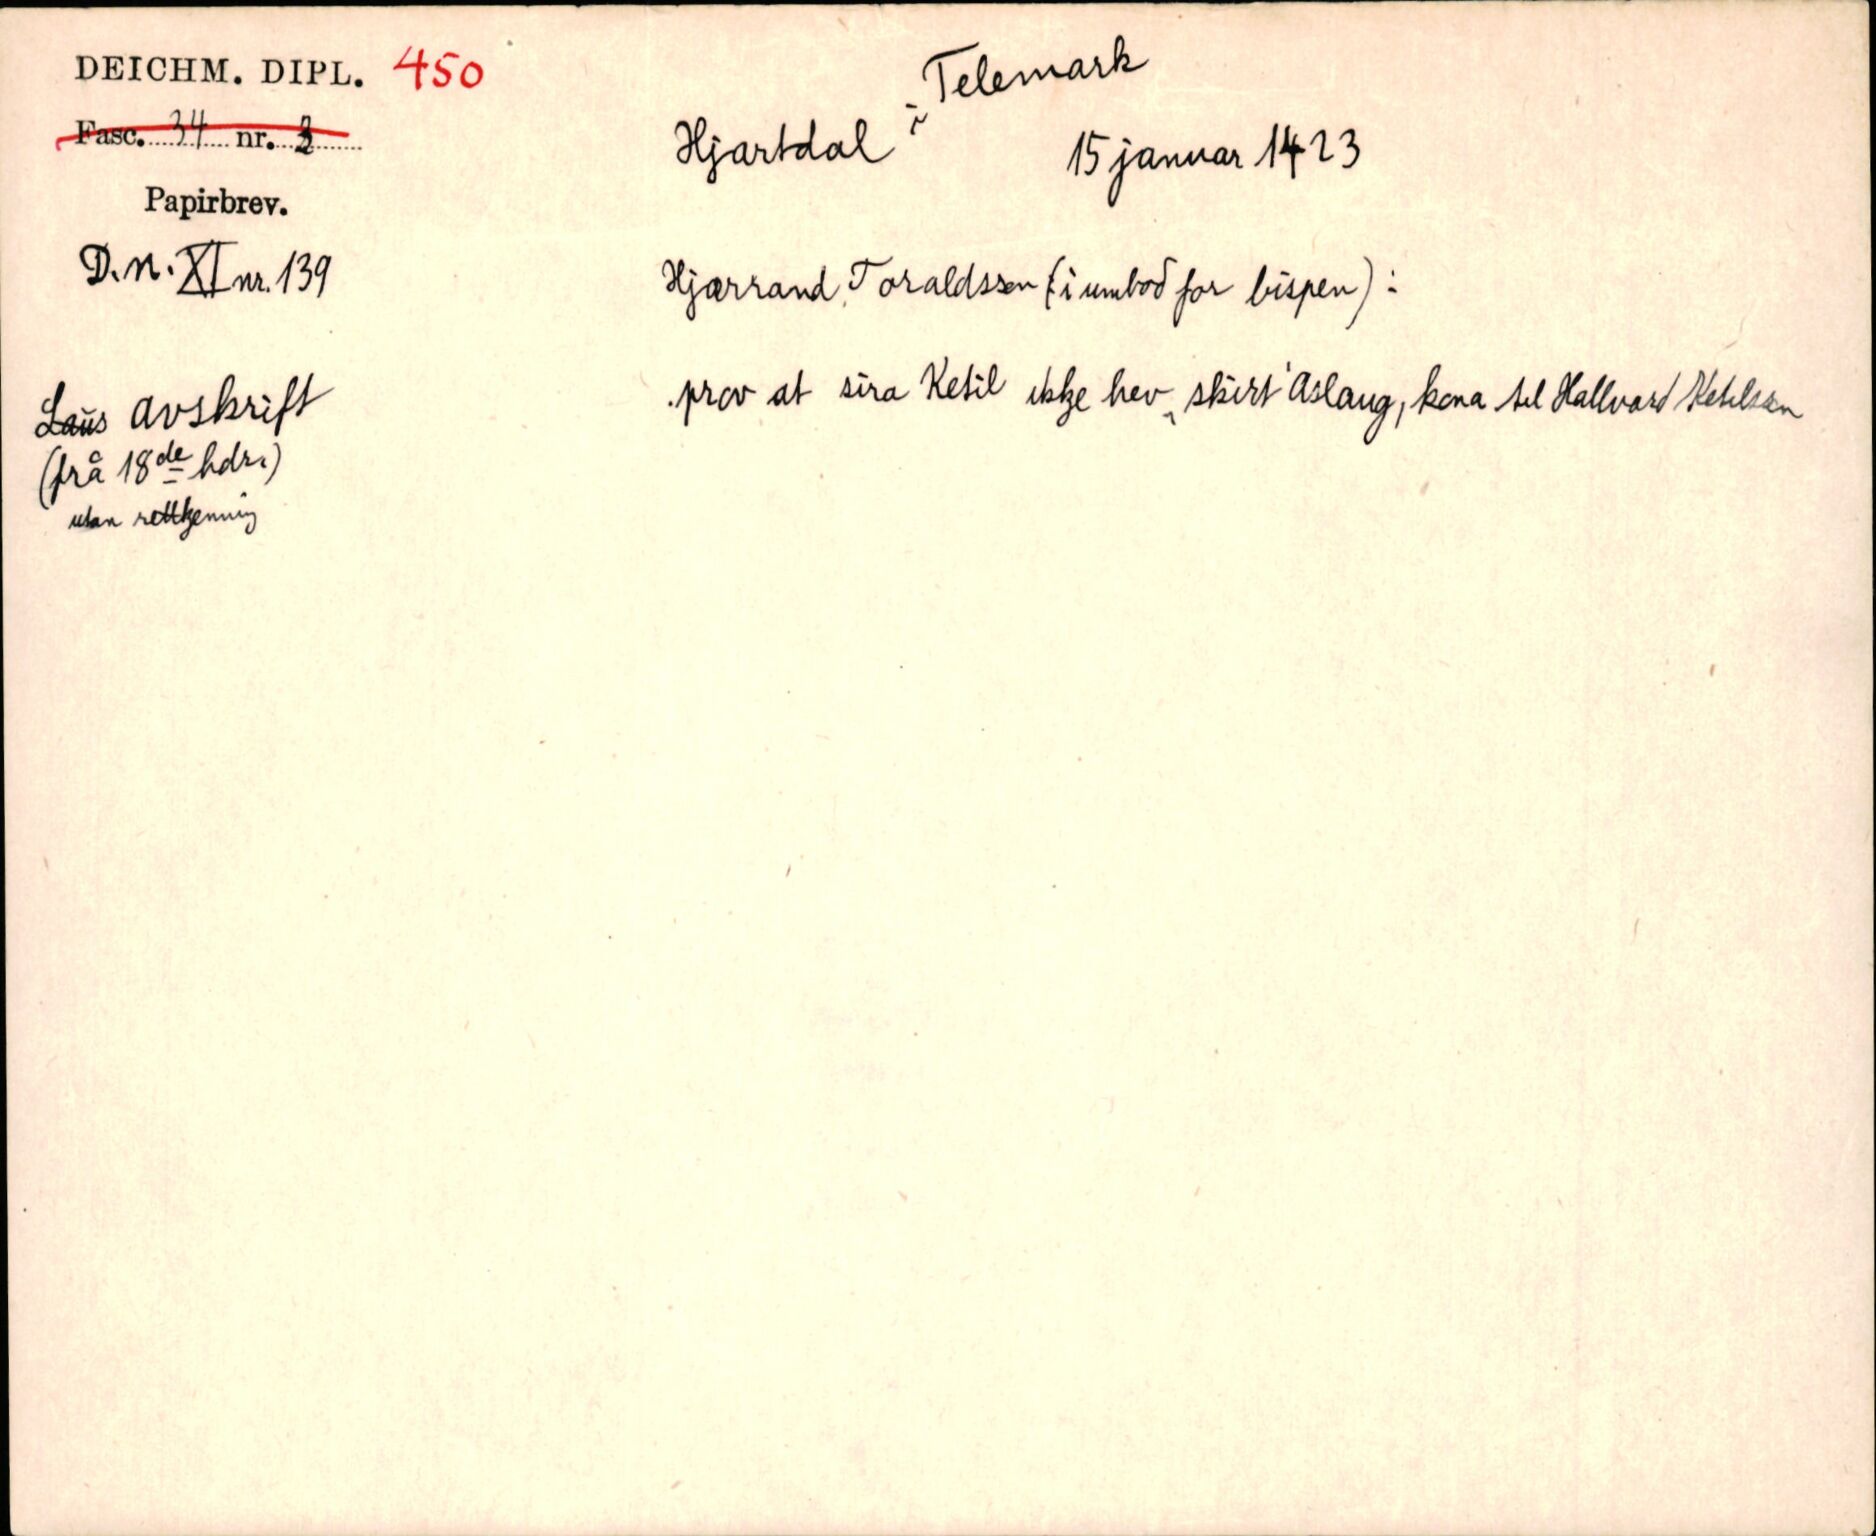 DEICHM. DIPL. 450
Fasc. 34 nr. 2
Papirbrev.
D.N. XI nr. 139
Laus avskrift
(frå 18de hdr.)
utan rettkjenning
Hjartdal i Telemark
15 januar 1423
Hjærrand Toraldssøn (i umbod for bispen):
prov at sira Ketil ikkje hev skirt Aslaug, kona til Hallvard Ketilssøn